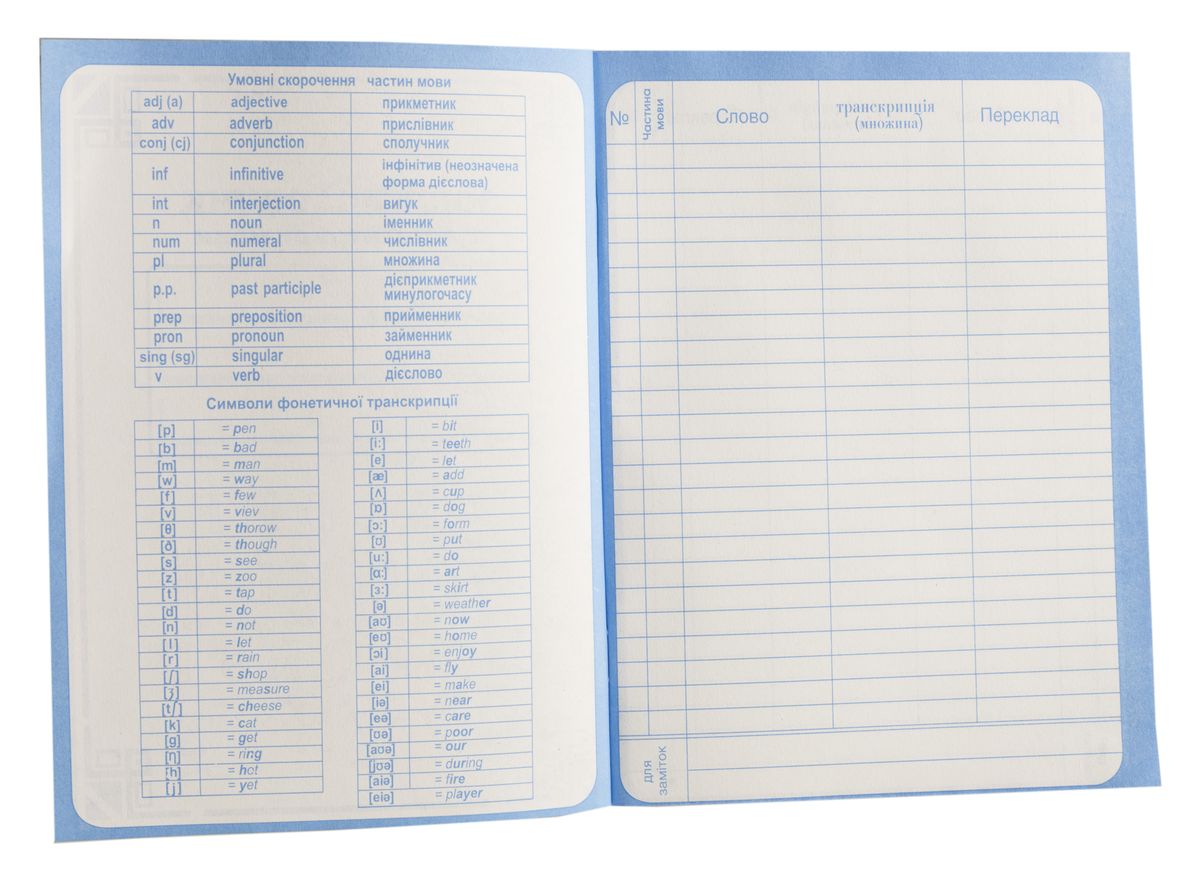 Умовні скорочення частин мови
adj (a) adjective прикметник
adv adverb прислівник
conj (cj) conjunction сполучник
inf infinitive інфінітив (неозначена
форма дієслова)
int interjection вигук
n noun іменник
num numeral числівник
pl plural множина
p.p. past participle дієприкметник
минулогочасу
prep preposition прийменник
pron pronoun займенник
sing (sg) singular однина
v verb дієслово
Символи фонетичної транскрипції
[p] = pen
[b] = bad
[m] = man
[w] = way
[f] = few
[v] = viev
[θ] = thorow
[ð] = though
[s] = see
[z] = zoo
[t] = tap
[d] = do
[n] = not
[l] = let
[r] = rain
[ʃ] = shop
[ʒ] = measure
[tʃ] = cheese
[k] = cat
[g] = get
[ŋ] = ring
[h] = hot
[j] = yet
[i] = bit
[i:] = teeth
[e] = let
[æ] = add
[ʌ] = cup
[ɒ] = dog
[ɔ:] = form
[ʊ] = put
[u:] = do
[ɑ:] = art
[ɜ:] = skirt
[ə] = weather
[aʊ] = now
[eʊ] = home
[ɔi] = enjoy
[ai] = fly
[ei] = make
[iə] = near
[eə] = care
[ʊə] = poor
[aʊə] = our
[jʊə] = during
[aiə] = fire
[eiə] = player
№ Частина
мови
Слово
транскрипція
(множина)
Переклад
для
заміток